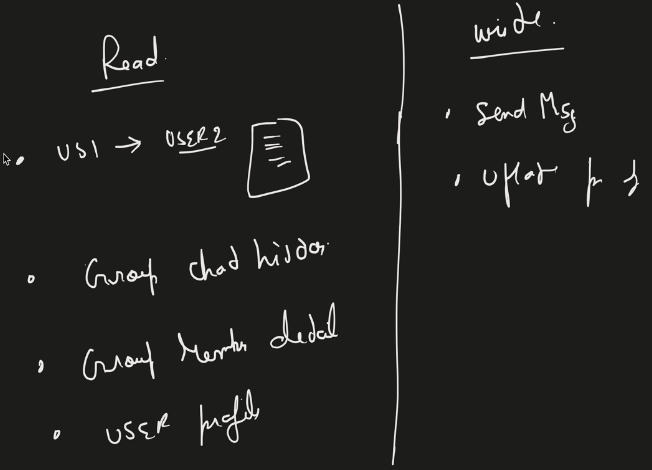 Read
US1 → USER2
Group chat history
Group Member detail
USER profile
write
Send Msg
Update